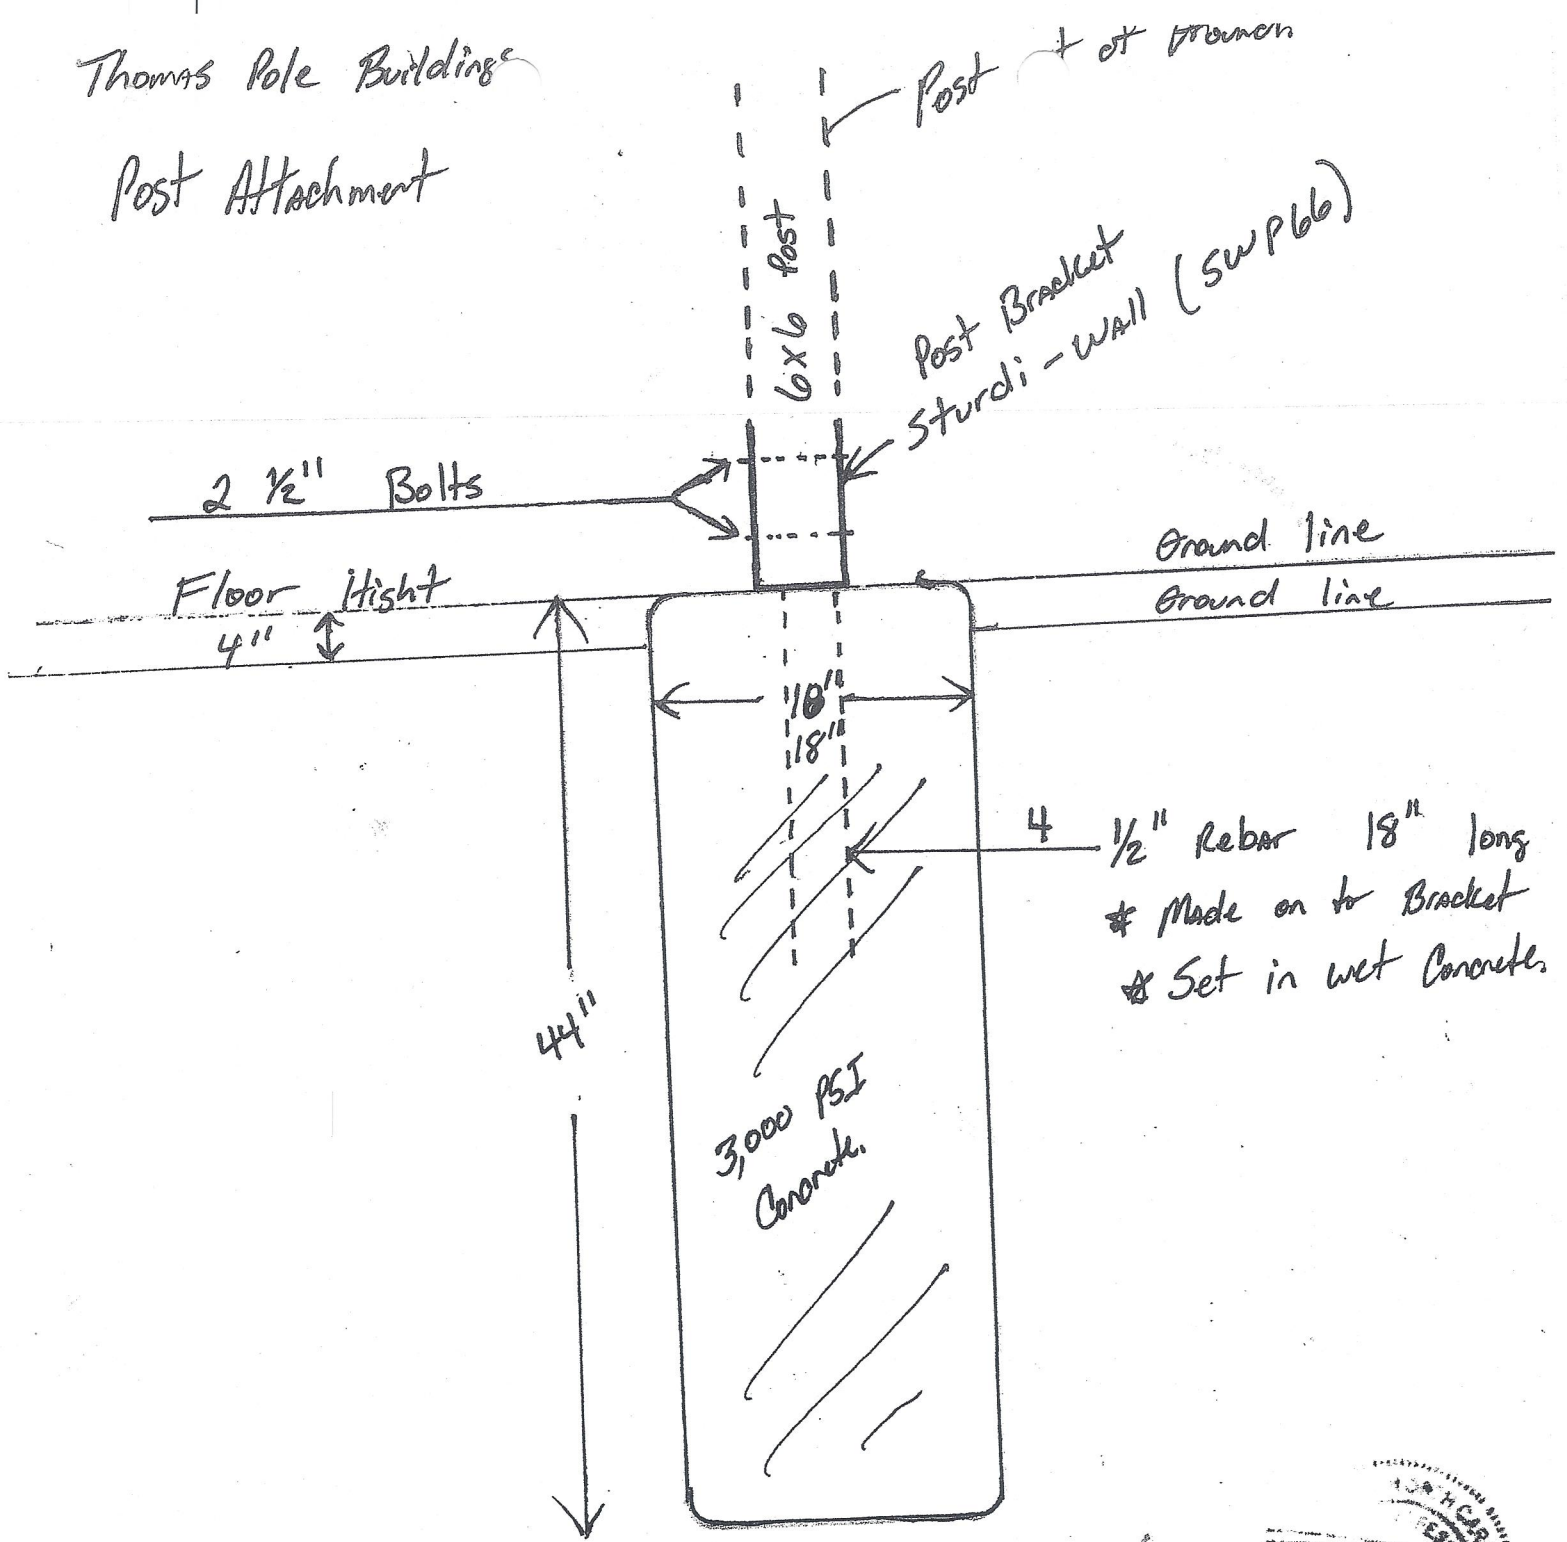 Thomas Pole Buildings
Post Attachment
Post
6x6 Post
Post Bracket
Sturdi-Wall (SWP66)
2 1/2" Bolts
Floor Hight
4"
Ground line
Ground line
18"
18"
4 1/2" Rebar 18" long
* Made on to Bracket
* Set in wet Concrete.
44"
3,000 PSI
Concrete.